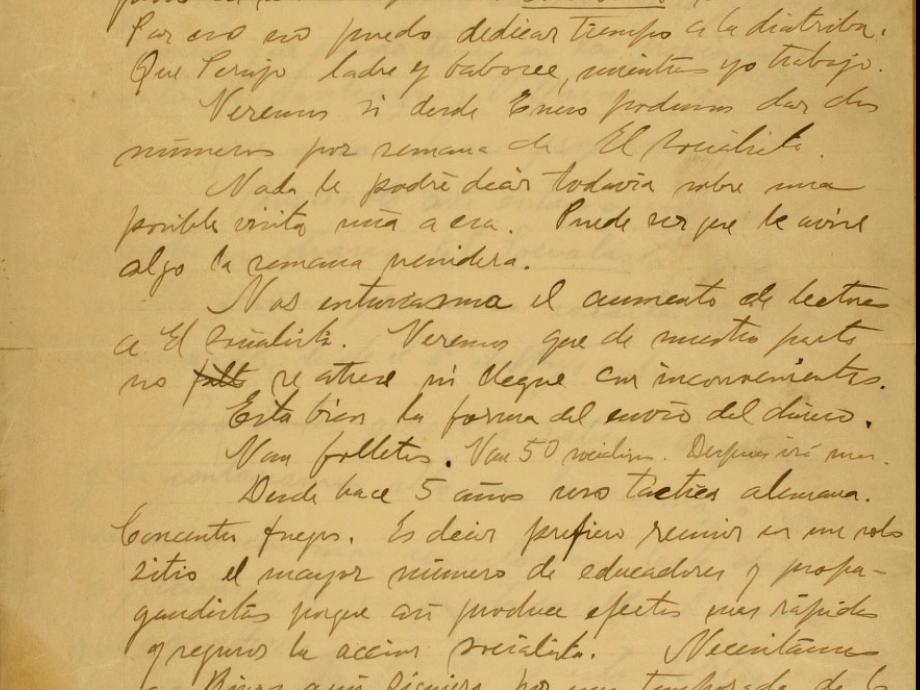 Por eso no puedo dedicar tiempo a la diatriba.
Que Perujo ladre y babosee, mientras yo trabajo.
Veremos si desde Enero podemos dar dos
números por semana de El Socialista.
Nada le podré decir todavía sobre una
posible visita mía a esa. Puede ser que le avise
algo la semana venidera.
Nos entusiasma el aumento de lectores
de El Socialista. Veremos que de nuestra parte
no se atrase ni llegue con inconvenientes.
Esta bien la forma del envío del dinero.
Van folletos. Van 50 Después irá mas.
Desde hace 5 años uso táctica alemana.
fuegos. Es decir prefiero reunir en un solo
sitio el mayor número de educadores y propa-
gandistas porque asi produce efectos mas rápidos
y seguros la accion socialista. Necesitamos
a aquí siquiera por una temporada de